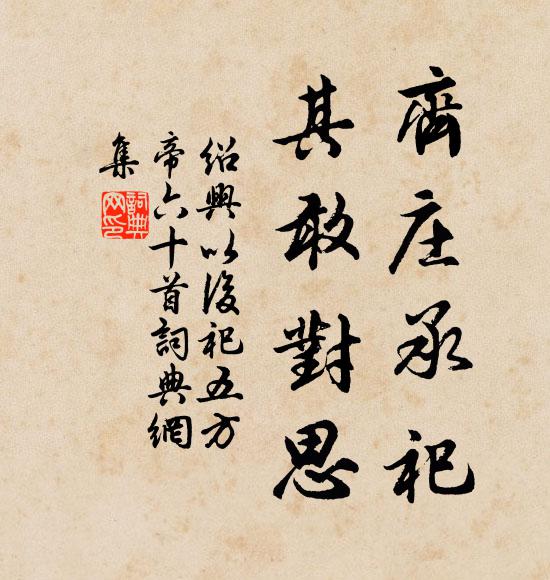 齊庄承祀
其敢對思
紹興以後祀五方
帝六十首詞典網
集
詞典網印